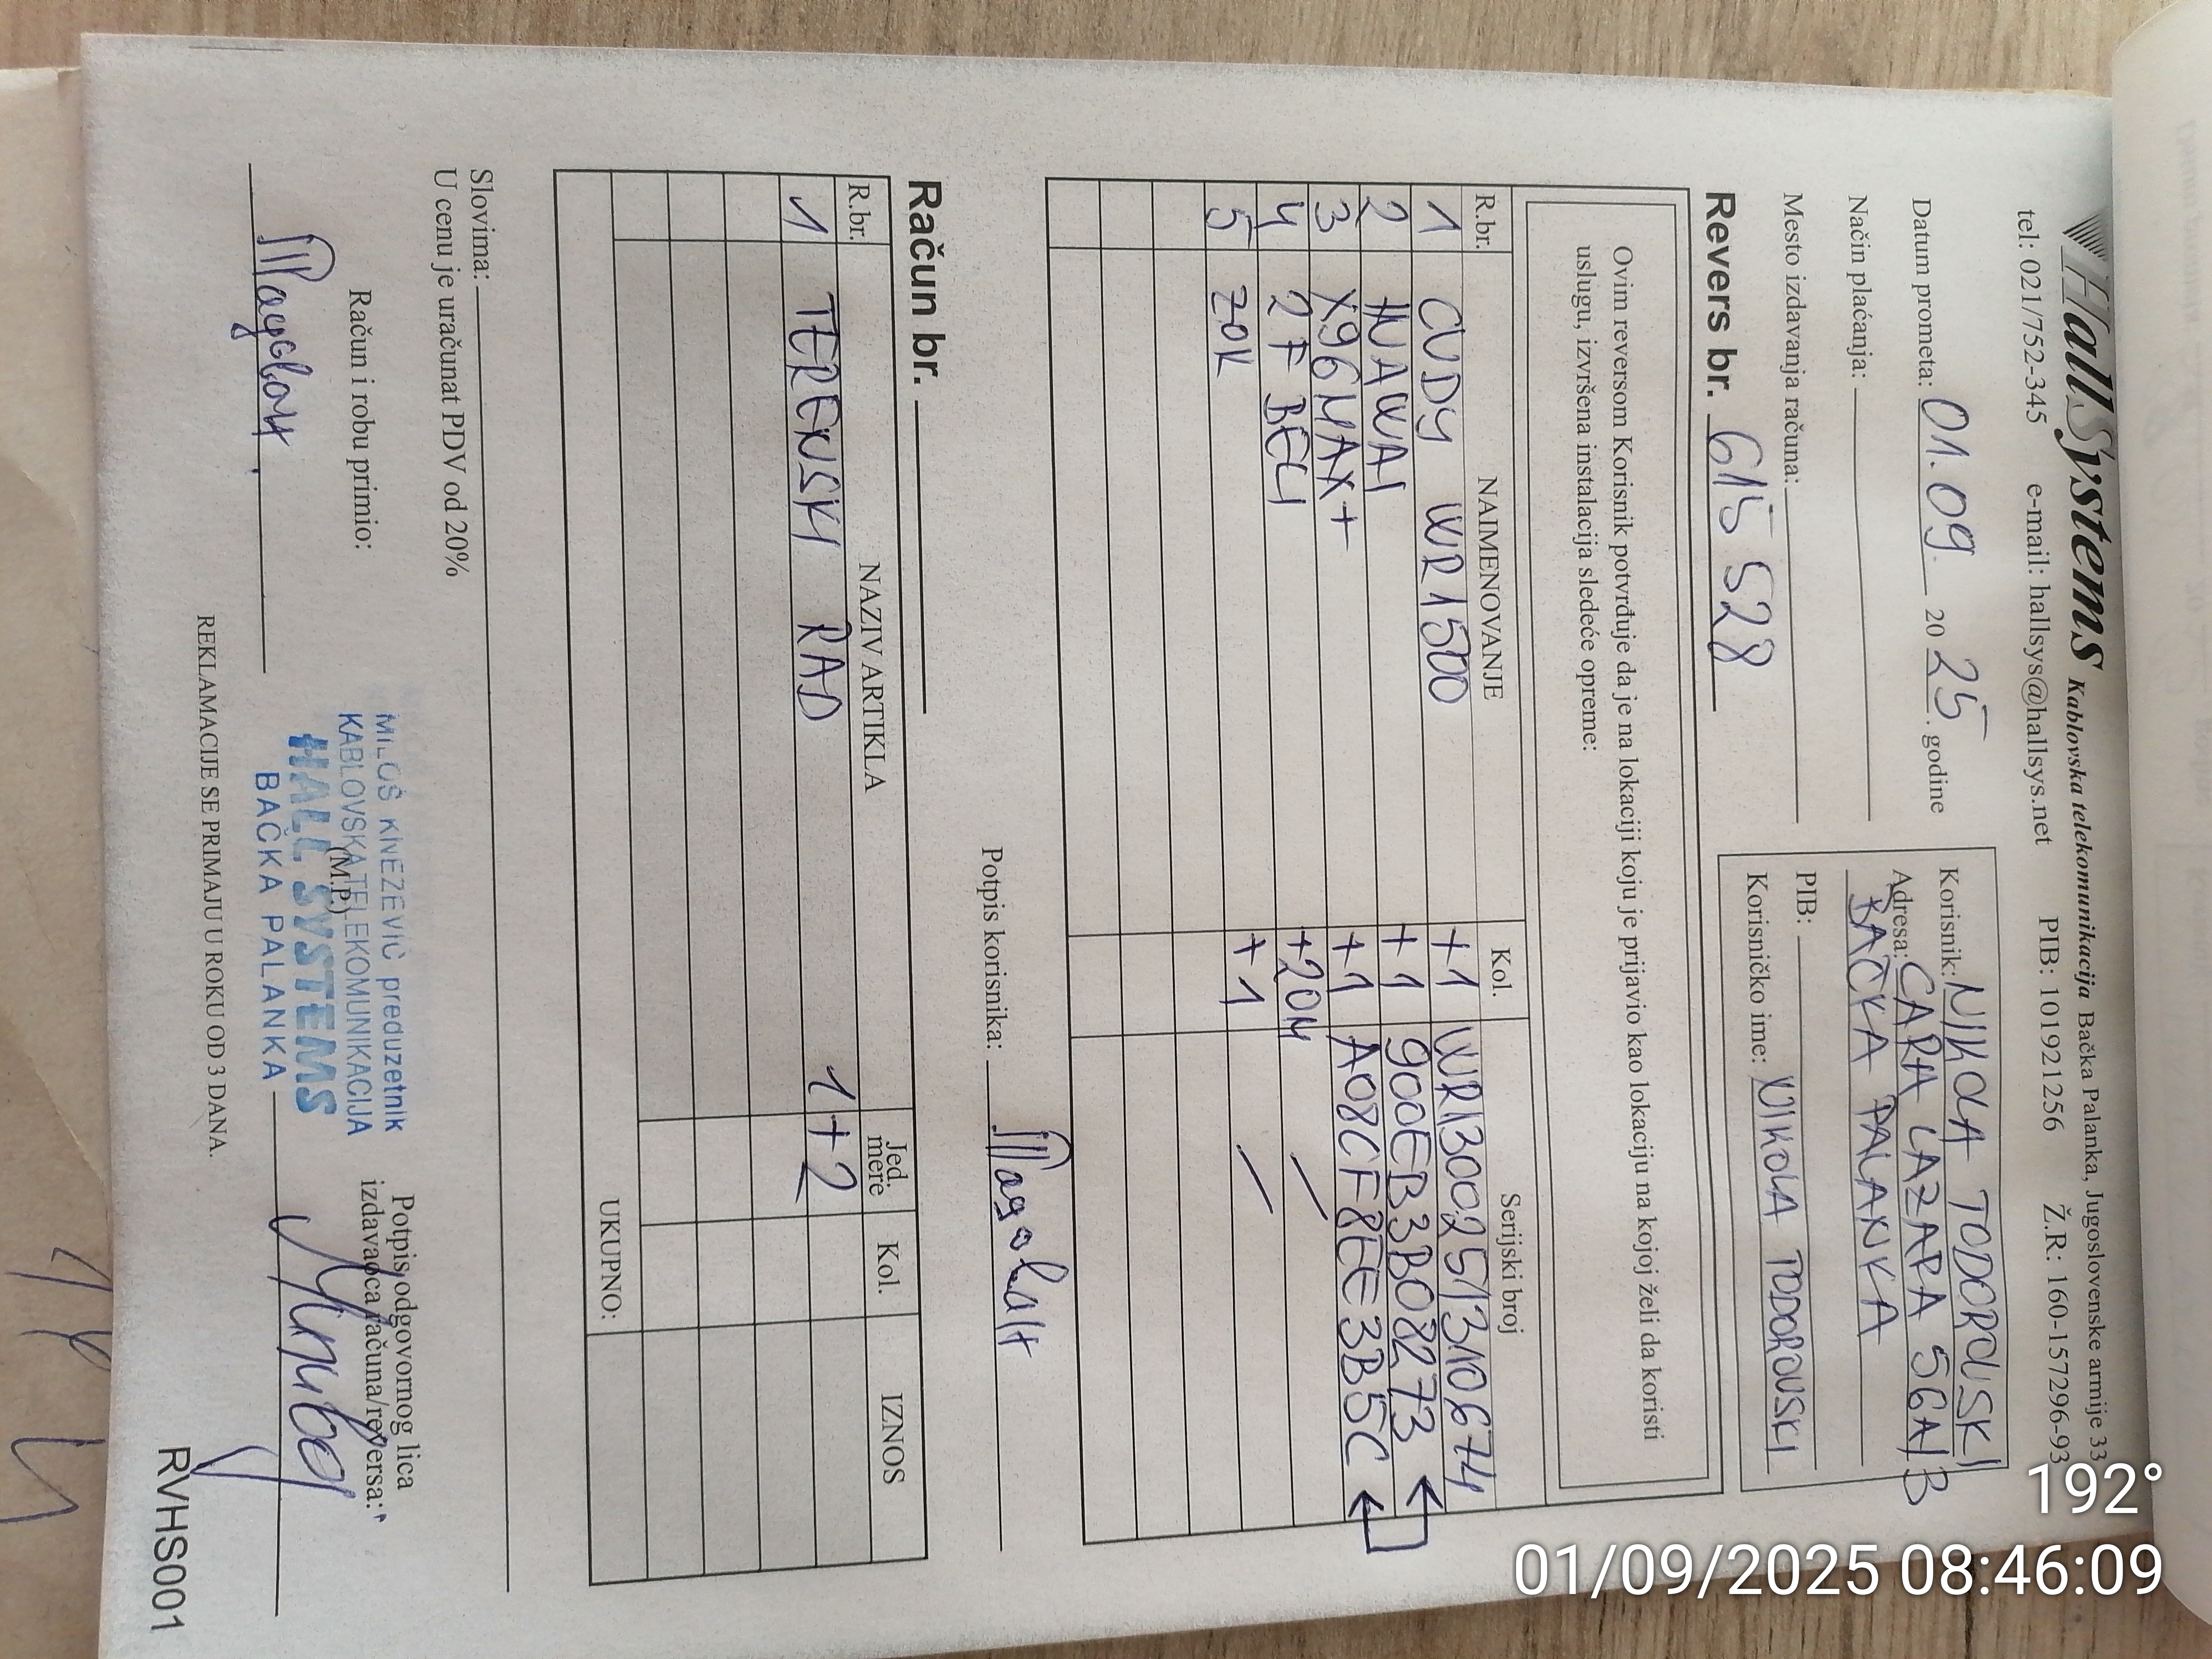 HallSystems Kablovska telekomunikacija Bačka Palanka, Jugoslovenske armije 33
tel: 021/752-345 e-mail: hallsys@hallsys.net PIB: 101921256 Ž.R.: 160-157296-93
Datum prometa: 01.09 2025. godine
Način plaćanja:
Mesto izdavanja računa:
Korisnik: NIKOLA TODOROVSKI
Adresa: CARA LAZARA 56A/3
BAČKA PALANKA
PIB:
Korisničko ime: NIKOLA TODOROVSKI
Revers br. 615 528
Ovim reversom Korisnik potvrđuje da je na lokaciji koju je prijavio kao lokaciju na kojoj želi da koristi
uslugu, izvršena instalacija sledeće opreme:
R.br. NAIMENOVANJE Kol. Serijski broj
1 CUDY WR1500 +1 WR1300251310674
2 HUAWAI +1 900EB3B08273
3 X96MAX+ +1 A08CF8EE3B5C
4 2F BELI +20M /
5 ZOK +1 /
Potpis korisnika:
Račun br.
R.br. NAZIV ARTIKLA Jed. mere Kol. IZNOS
1 TERENSKI RAD 1+2
UKUPNO:
Slovima:
U cenu je uračunat PDV od 20%
Račun i robu primio:
MILOŠ KNEŽEVIĆ preduzetnik
KABLOVSKA TELEKOMUNIKACIJA
(M.P.)
HALL SYSTEMS
BAČKA PALANKA
Potpis odgovornog lica
izdavaoca računa/reversa:
REKLAMACIJE SE PRIMAJU U ROKU OD 3 DANA.
RVHS001
192°
01/09/2025 08:46:09